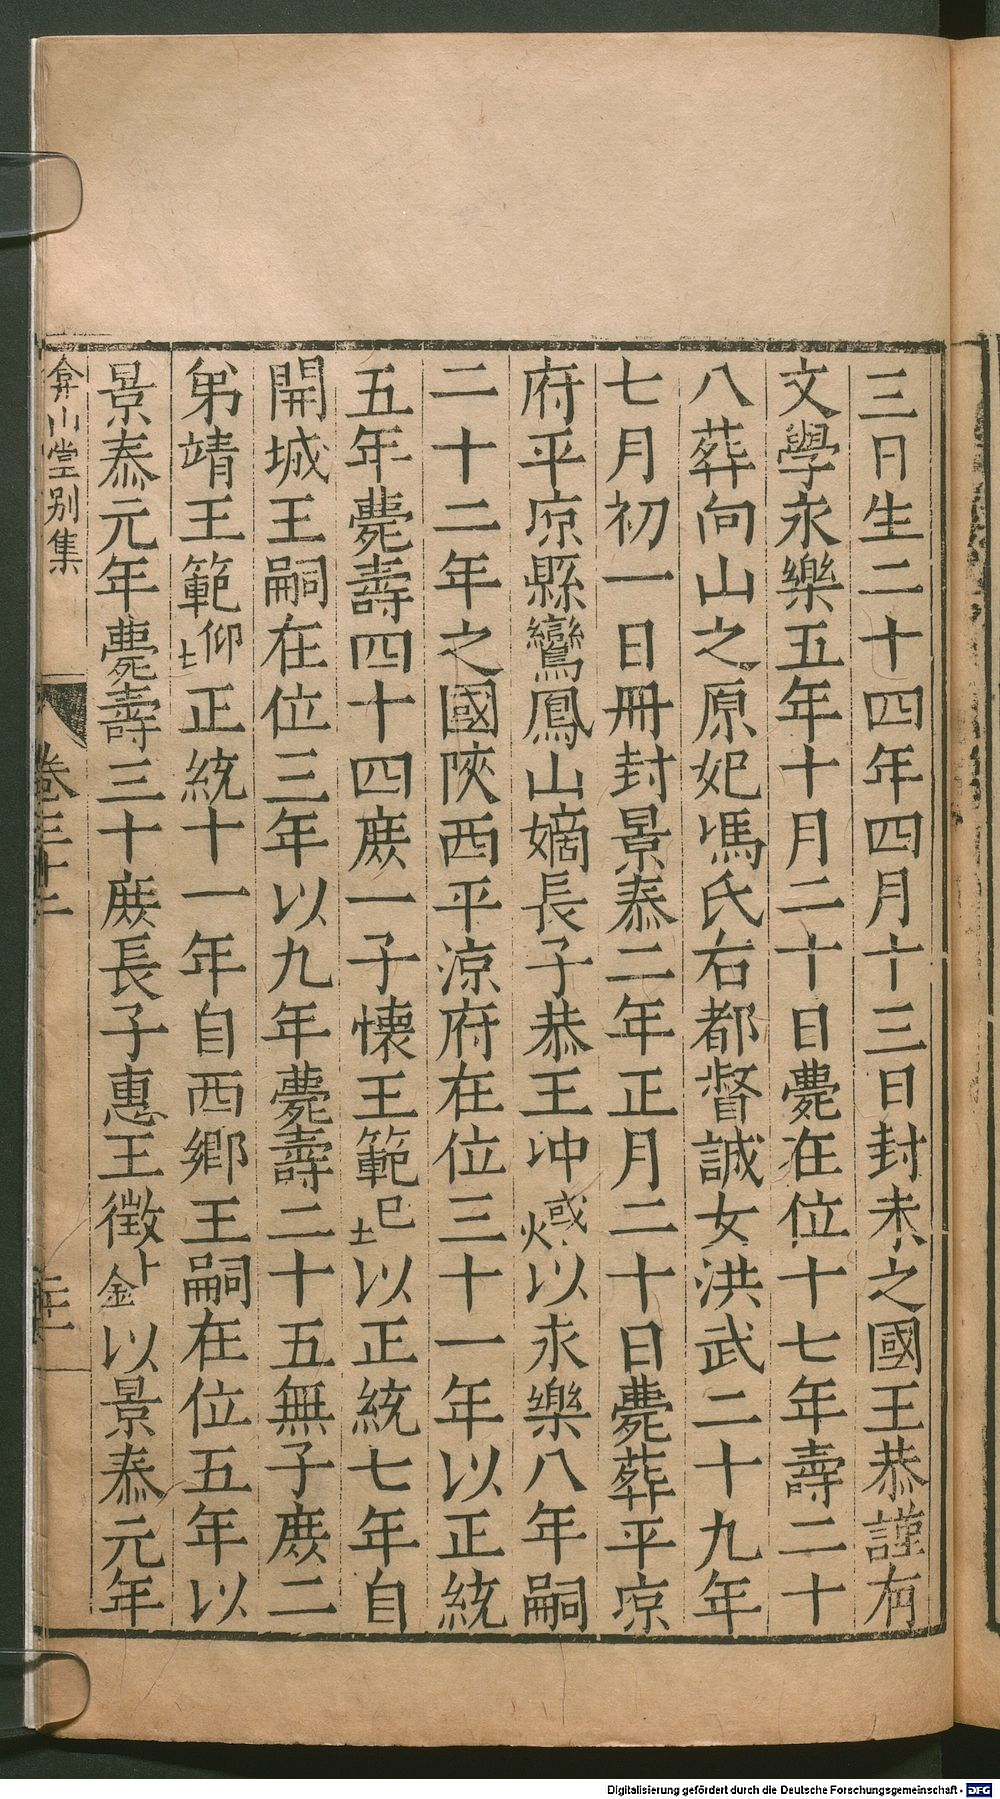 三日生二十四年四月十三日封未之國王恭謹有
文學永樂五年十月二十日薨在位十七年壽二十
八葬向山之原妃馮氏右都督誠女洪武二十九年
七月初一日冊封景泰二年正月二十日薨葬平凉
府平凉縣鸞鳳山嫡長子恭王冲或火以永樂八年嗣
二十二年之國陝西平涼府在位三十一年以正統
五年薨壽四十四庶一子懷王範巳土以正統七年自
開城王嗣在位三年以九年薨壽二十五無子庶二
弟靖王範仰土正統十一年自西鄉王嗣在位五年以
景泰元年薨壽三十庶長子惠王徵卜金以景泰元年
弇山堂别集
卷三十二
Digitalisierung gefördert durch die Deutsche Forschungsgemeinschaft - DFG